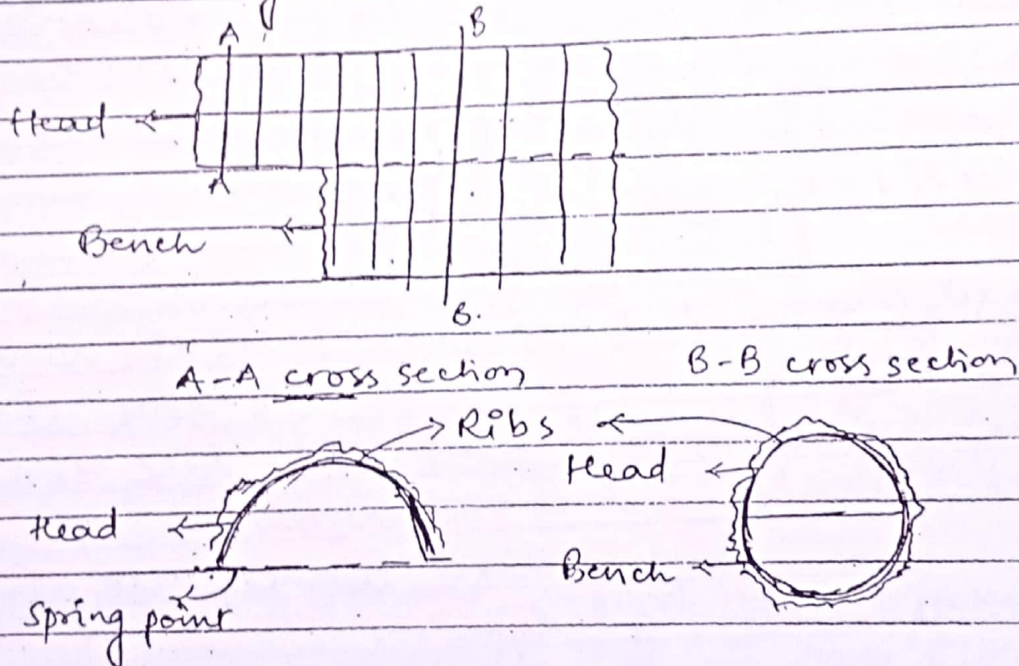 A
B
Head
A
Bench
B.
A-A cross section
B-B cross section
Ribs
Head
Head
Bench
Spring point